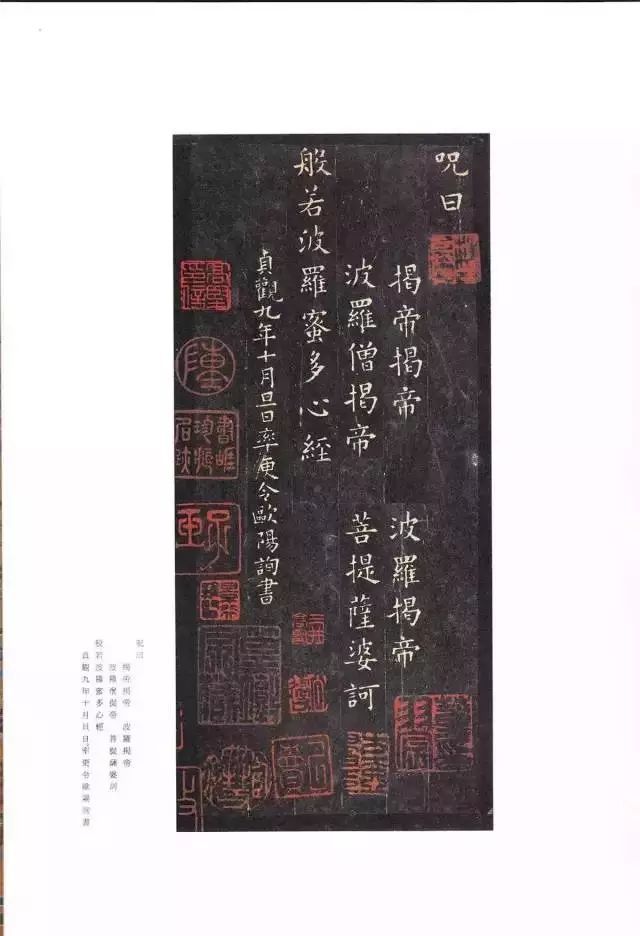 呪曰
揭帝揭帝 波羅揭帝
波羅僧揭帝 菩提薩婆訶
般若波羅蜜多心經
貞觀九年十月旦日率更令歐陽詢書
呪曰
揭帝揭帝 波羅揭帝
波羅僧揭帝 菩提薩婆訶
般若波羅蜜多心經
貞觀九年十月旦日率更令歐陽詢書